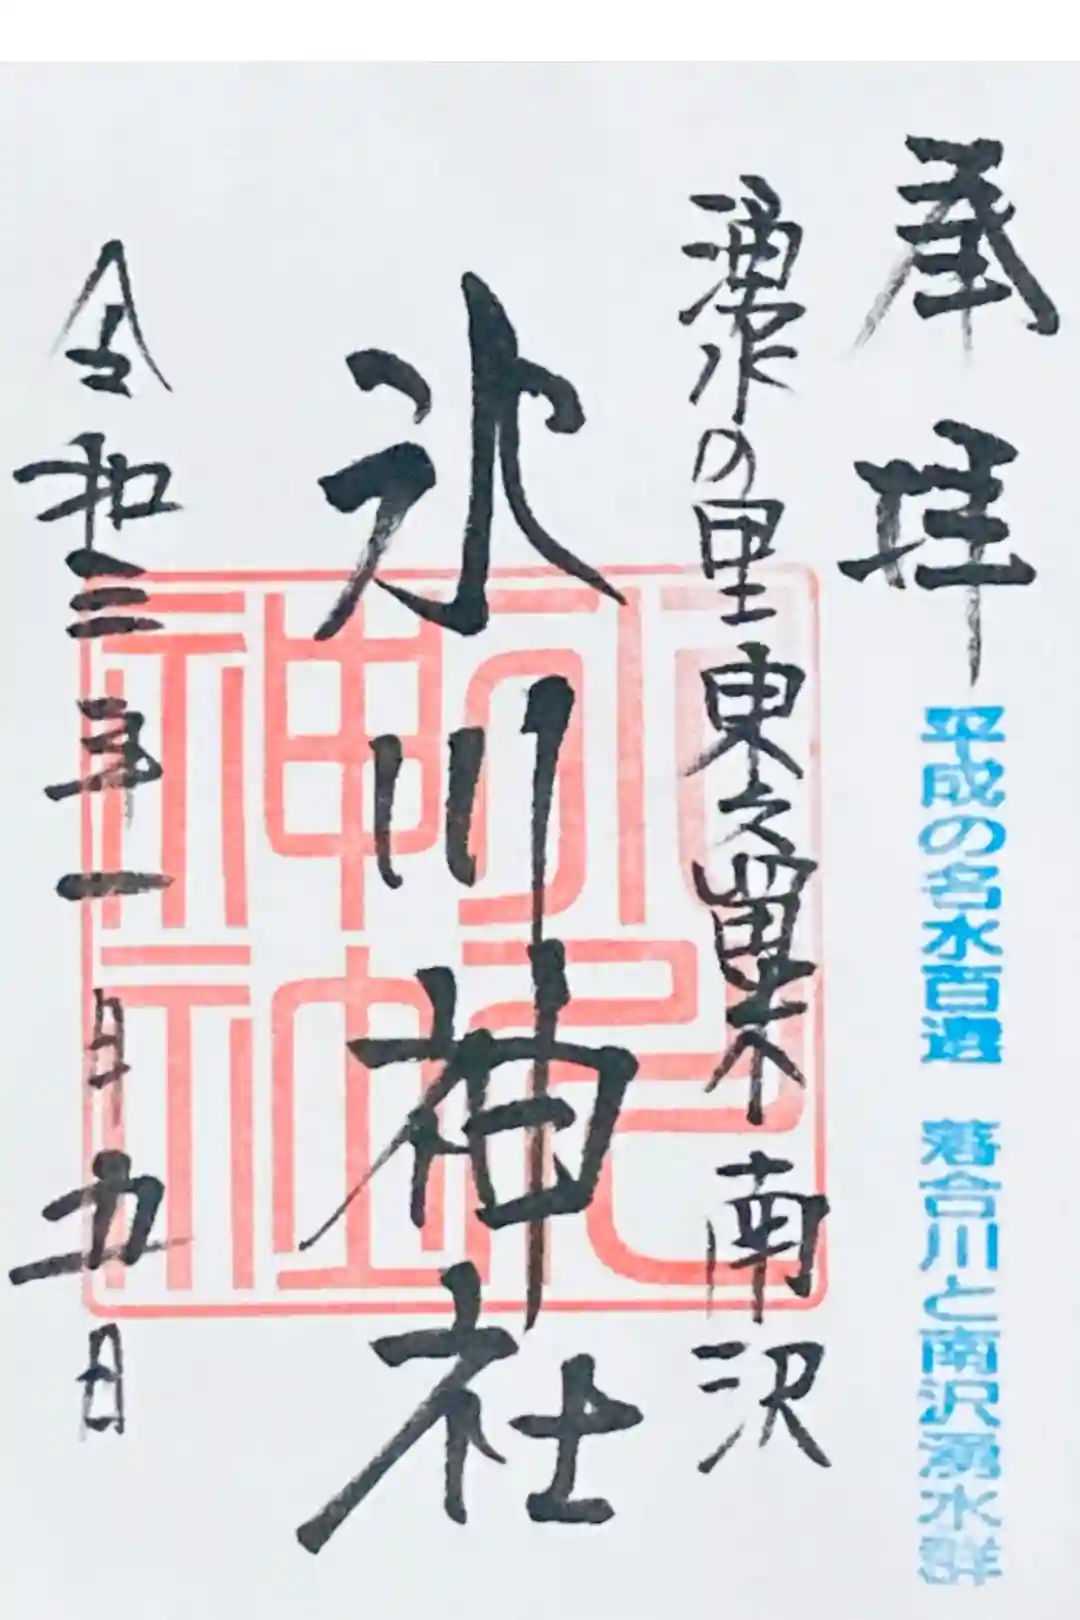 奉拝
平成の名水百選 落合川と南沢湧水群
湧水の里東久留米南沢
氷川神社
氷川神社
令和三年一月五日